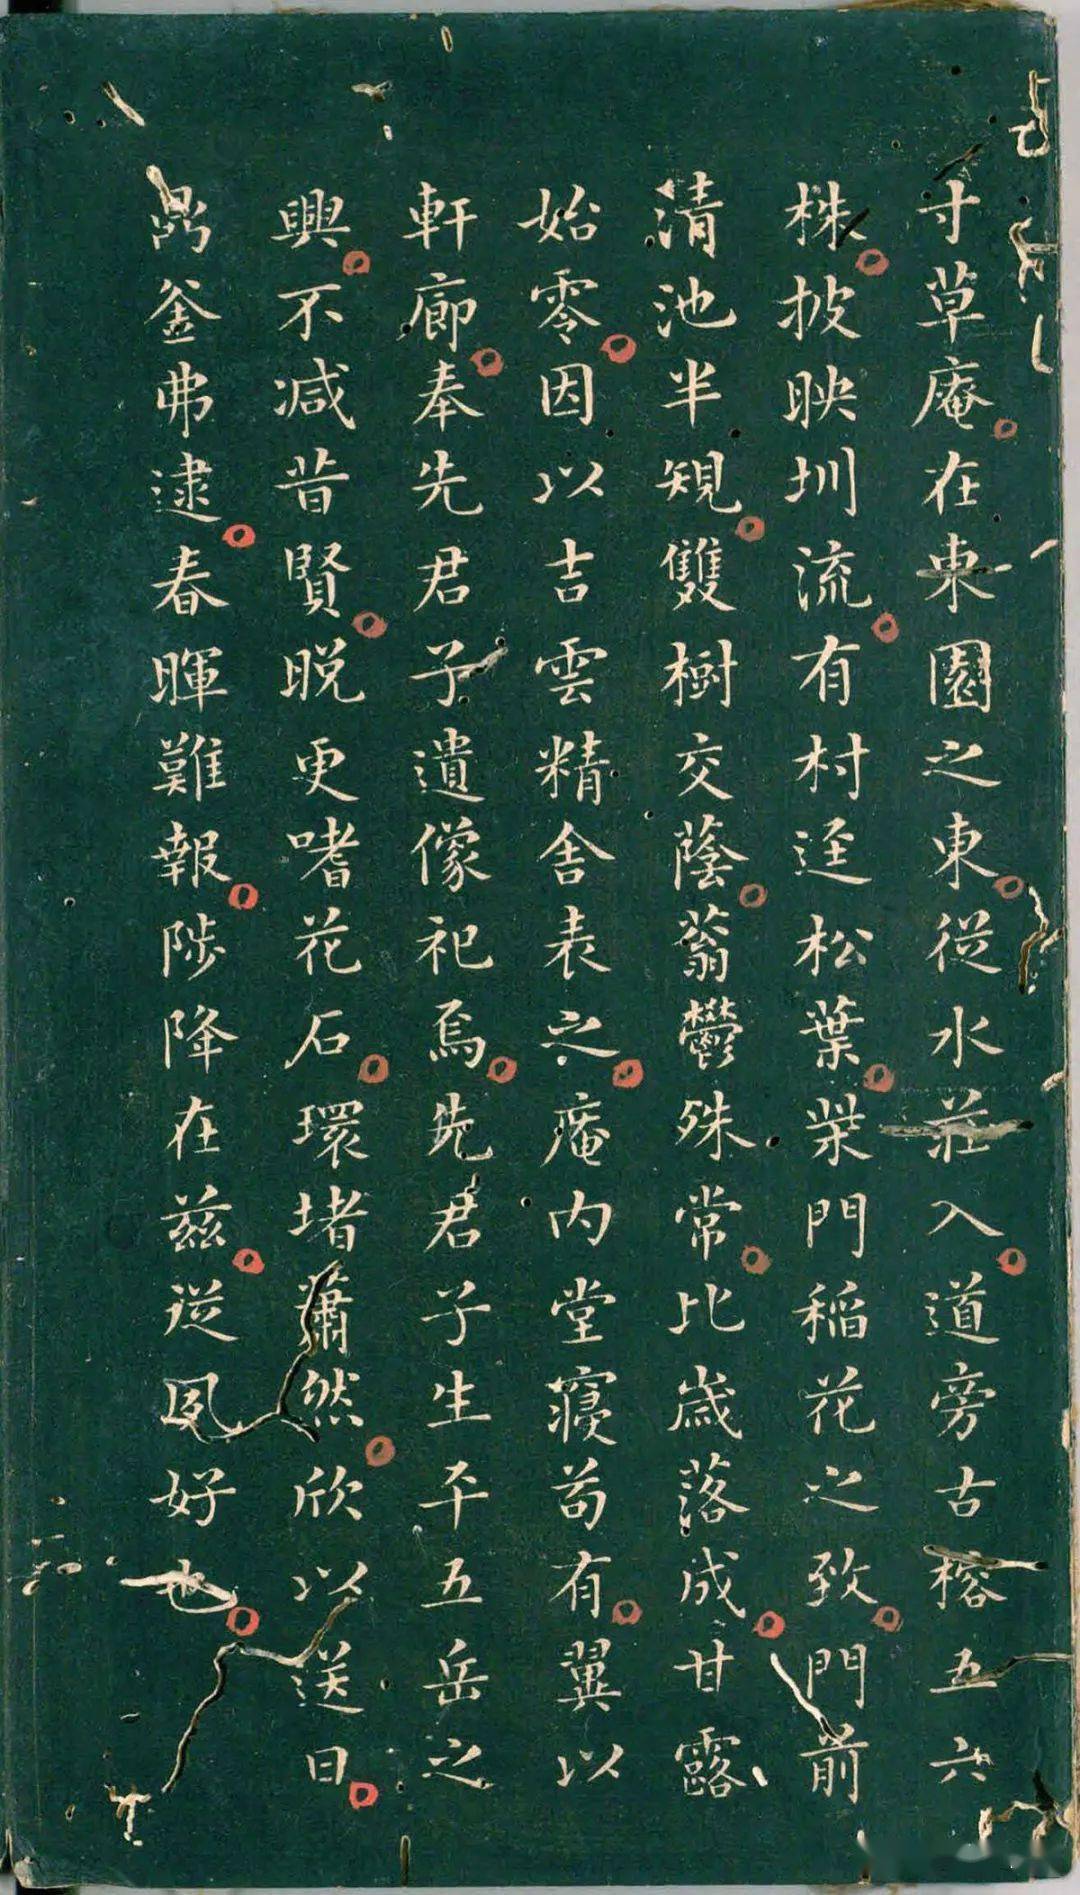 寸草庵在東園之東從水莊入道旁古榕五六
株披映圳流有村迳松葉柴門稲花之致門前
清池半規雙樹交蔭蓊欝殊常比歳落成甘露
始零因以吉雲精舍表之庵内堂寢苟有翼以
軒廊奉先君子遺像祀焉先君子生平五岳之
興不減昔賢晩更嗜花石環堵蕭然欣以送日
鼎釜弗逮春暉難報陟降在兹從夙好也